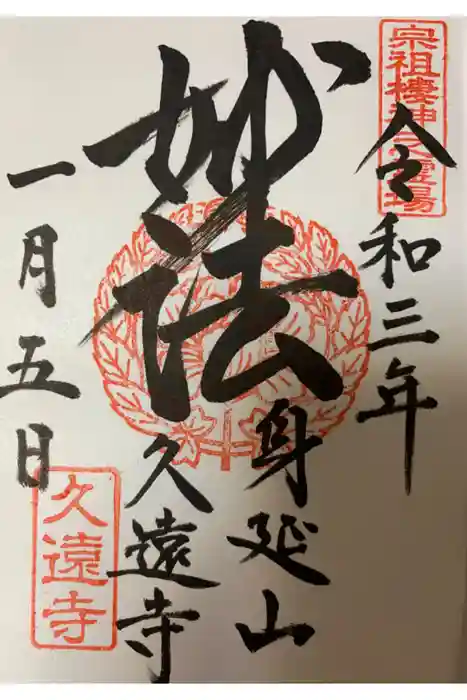 宗祖棲神之霊場
令和三年
身延山
妙法
久遠寺
一月五日
久遠寺